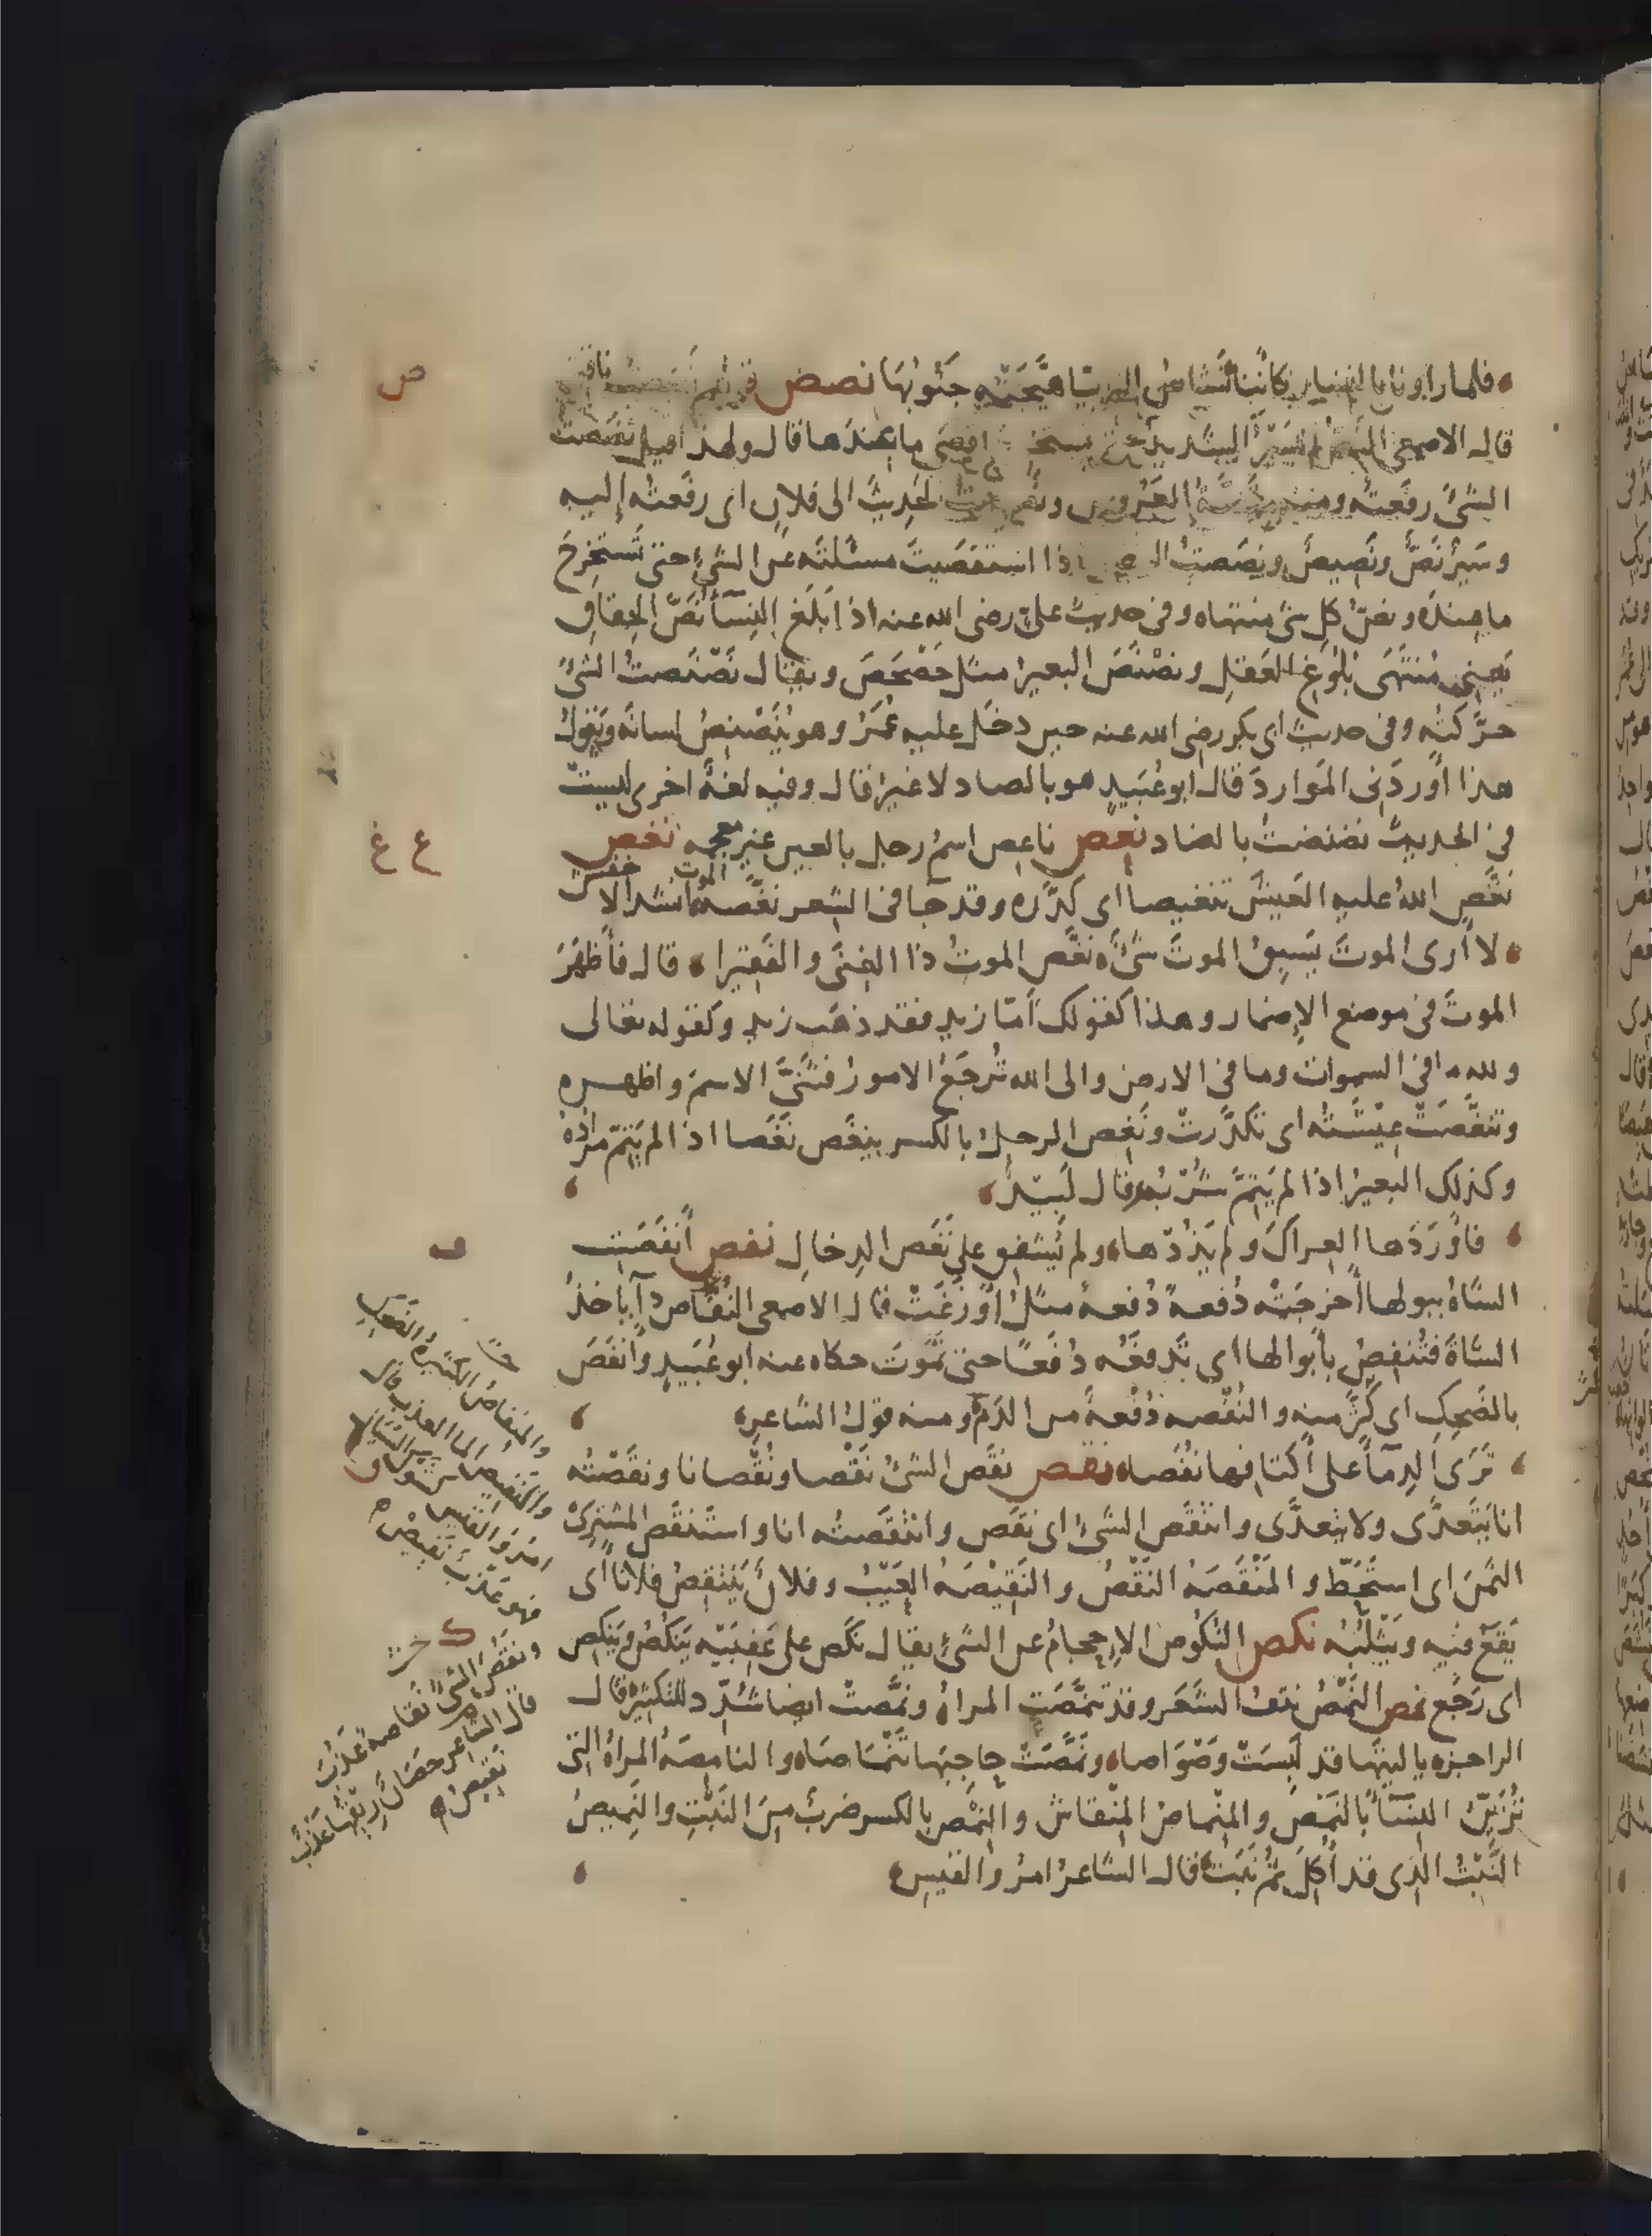 فلما رأونا بالنهار كأننا نشاص الثريا هيجته جنوبها نصص
قال الاصمعي النص السير الشديد حتى يستخرج اقصى ما عندها قال ولهذا قيل نصصت
الشئ رفعته ومنه منصة العروس ونصصت الحديث الى فلان اى رفعته إليه
وسير نص ونصيص ونصصت الرجل اذا استقصيت مسئلته عن الشئ حتى تستخرج
ما عنده ونص كل شئ منتهاه وفى حديث على رضى الله عنه اذا بلغ النساء نص الحقاق
يعنى منتهى بلوغ العقل ونصنص البعير مثل حصحص ويقال نصنصت الشئ
حركته وفى حديث ابى بكر رضى الله عنه حين دخل عليه عمر وهو ينصنص لسانه ويقول
هذا أوردنى الموارد قال ابو عبيد هو بالصاد لا غير قال وفيه لغة اخرى ليست
فى الحديث نضنضت بالضاد نعص ناعص اسم رجل بالعين غير معجمه نغص
نغص الله عليه العيش تنغيصا اى كدره وقد جا فى الشعر نغصه انشد الاخفش
لا أرى الموت يسبق الموت شئ نغص الموت ذا الغنى والفقيرا قال فأظهر
الموت فى موضع الإضمار وهذا كقولك أمّا زيد فقد ذهب زيد وكقوله تعالى
ولله ما فى السموات وما فى الارض والى الله ترجع الامور فثنى الاسم واظهره
وتنغصت عيشته اى تكدرت ونغص الرجل بالكسر ينغص نغصا اذا لم يتم مراده
وكذلك البعير اذا لم يتم شربه قال لبيد
فأوردها العراك ولم يذدها ولم يشفق على نغص الدخال نفص أنفصت
الشاة ببولها أخرجته دفعة دفعة مثل أوزغت قال الاصمعى النفاص داء يأخذ
الشاة فتنفص بأبوالها اى تدفعه دفعا حتى تموت حكاه عنه ابو عبيد وأنفص
بالضحك اى كثر منه والنفصه دفعة من الدم ومنه قول الشاعر
ترى الدماء على أكتافها نفصا نقص نقص الشئ نقصا ونقصانا ونقصته
انا يتعدى ولا يتعدى وانتقص الشئ اى نقص وانتقصته انا واستنقص المشترى
الثمن اى استحط والمنقصة النقص والنقيصه العيب وفلان ينتقص فلانا اى
يقع فيه ويثلبه نكص النكوص الإحجام عن الشئ يقال نكص على عقبيه ينكص وينكص
اى رجع نمص النمص نتف الشعر وقد تنمصت المراة ونمصت ايضا شدد للتكثير قال
الراجز يا ليتها قد لبست وصواصا ونمصت حاجبها تنماصا والنامصة المراة التى
تزين النساء بالنمص والمنماص المنقاش والنمص بالكسر ضرب من النبت والنميص
النبت الذى قد أكل ثم نبت قال الشاعر امرؤ القيس
ص
ع غ
ف
والمنفاص الكثيرة الضحك
والنقيص الما العذب قال
امرؤ القيس
فهو عذب نقيص
ق
ك
ونقص الشئ نقاصة عذب
قال الشاعر حصان ريقها عذب
نقيص